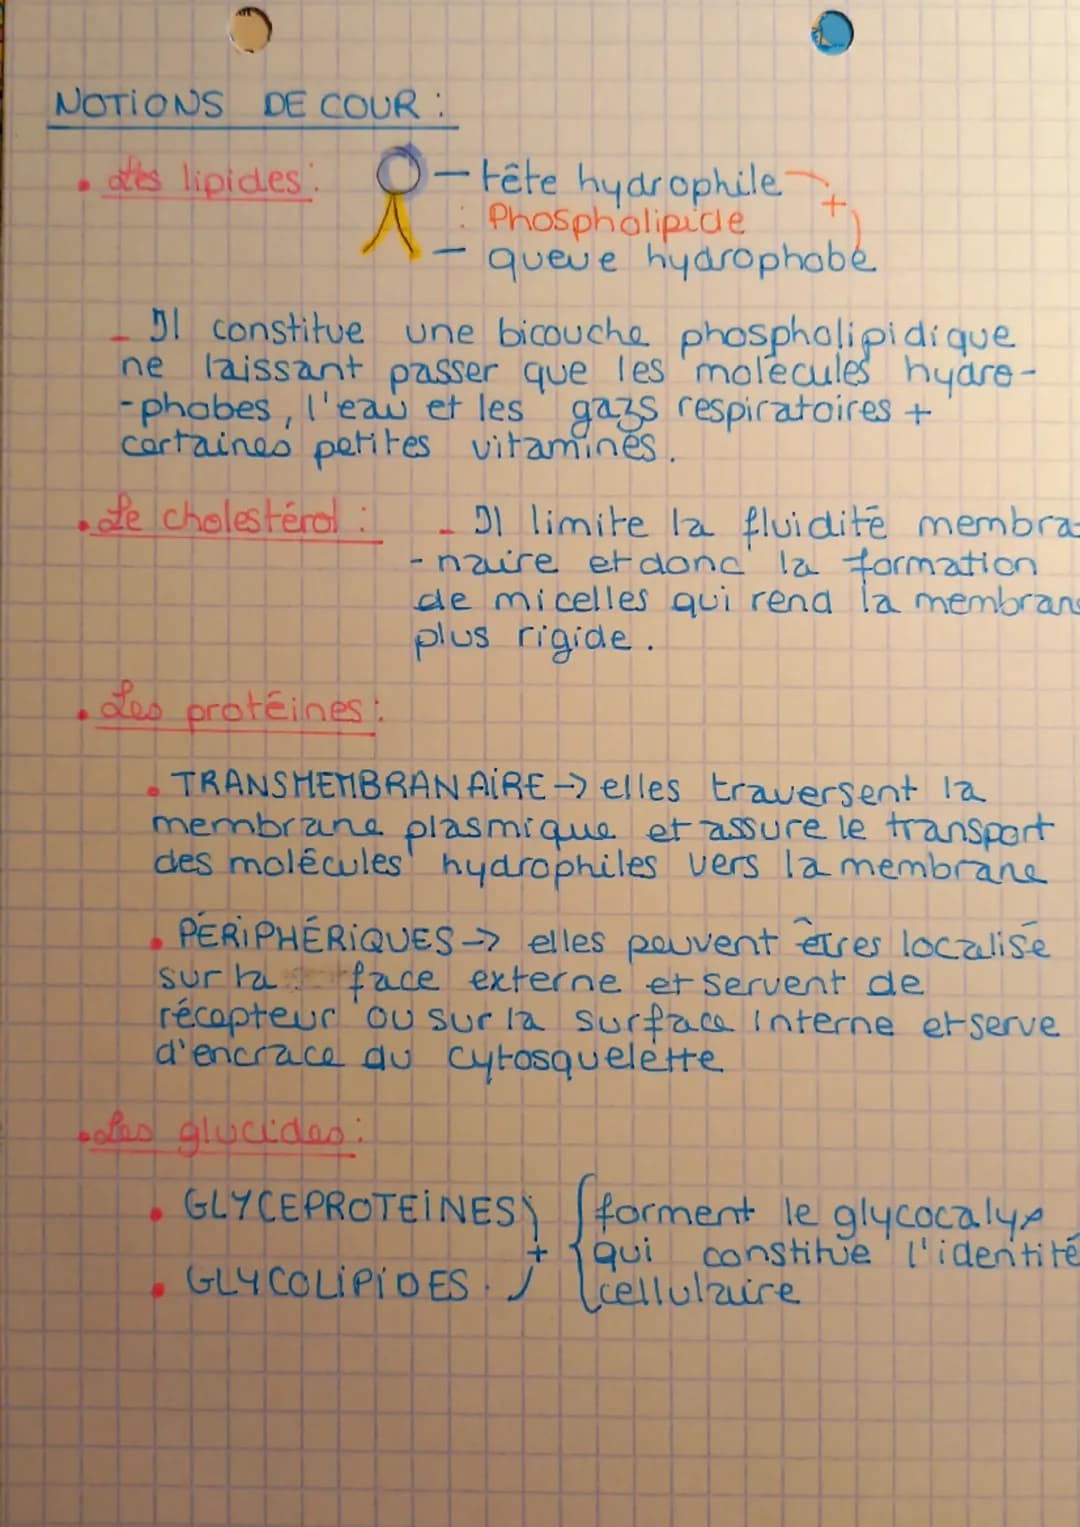 NOTIONS DE COUR :
• Les lipides : — tête hydrophile
: Phospholipide +
— queue hydrophobe
- Il constitue une bicouche phospholipidique
ne laissant passer que les molécules hydro-
-phobes, l'eau et les gazs respiratoires +
certaines petites vitamines.
• Le cholestérol : - Il limite la fluidité membra-
-naire et donc la formation
de micelles qui rend la membrane
plus rigide.
• Les protéines :
• TRANSMEMBRANAIRE → elles traversent la
membrane plasmique et assure le transport
des molécules hydrophiles vers la membrane
• PÉRIPHÉRIQUES → elles peuvent êtres localisé
sur la face externe et servent de
récepteur ou sur la surface interne et serve
d'encrace du cytosquelette
• Les glucides :
• GLYCEPROTEINES } { forment le glycocalyx
+ qui constitue l'identité
• GLYCOLIPIDES. cellulaire